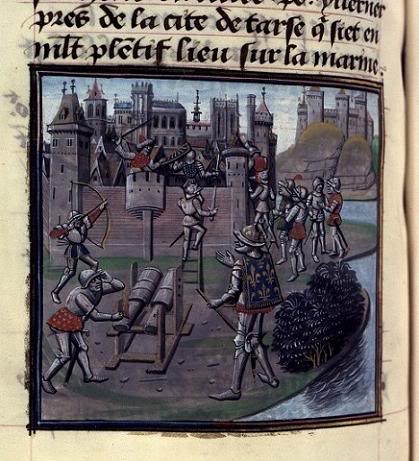 pres de la cite de tarse q̃ siet en
ml̃t plẽtif lieu sur la marine.